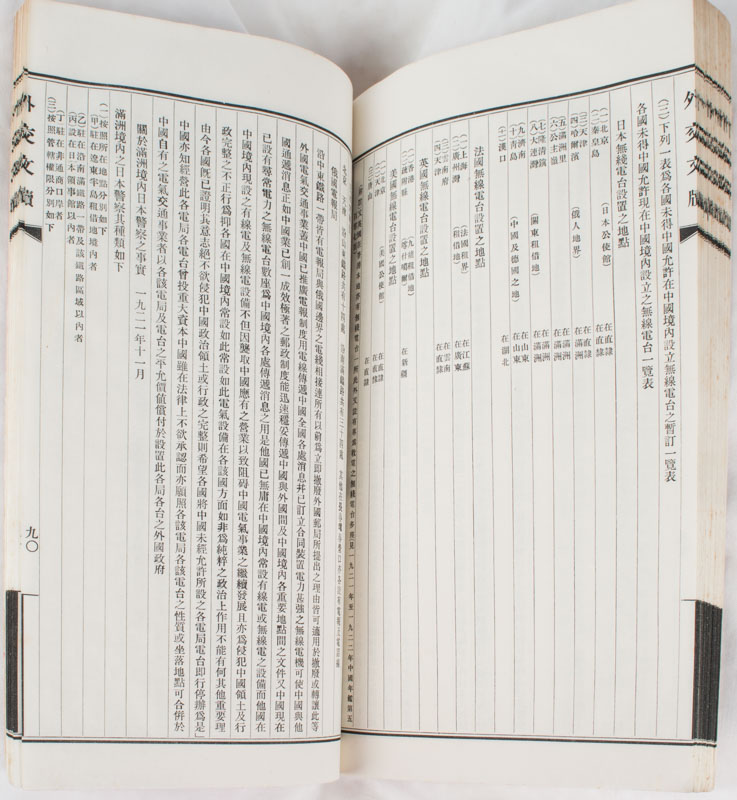 外交文牘
(三)下列一表爲各國未得中國允許在中國境內設立無線電台之暫訂一覽表
各國未得中國允許現在中國境內設立之無線電台一覽表
日本無綫電台設置之地點
(一)北京 (日本公使館) 在直隸
(二)秦皇島 在直隸
(三)天津 在直隸
(四)哈爾濱 (俄人地界) 在滿洲
(五)滿洲里 在滿洲
(六)公主嶺 在滿洲
(七)隆清鎮 在滿洲
(八)大連灣 (關東租借地) 在滿洲
(九)濟南 在山東
(十)青島 (中國及德國之地) 在山東
(十一)漢口 在湖北
法國無綫電台設置之地點
(一)上海 (法國租界) 在江蘇
(二)廣州灣 (租借地) 在廣東
(三)雲南府 在雲南
(四)天津 在直隸
英國無綫電台設置之地點
香港 (九龍租借地)
(喀什噶爾) 在新疆
美國無綫電台設置之地點
(一)北京 (美國公使館) 在直隸
(二)天津 在直隸
在直隸
俄國電報局
沿中東鐵路一帶皆有電報局與俄國邊界之電綫相接連所有以前爲立即撤廢外國郵局所提出之理由皆可適用於撤廢或轉讓此等
外國電氣交通事業蓋中國已推廣電報制度用電線傳遞中國全國各處消息幷已訂立合同裝置電力甚強之無線電機可使中國與他
國通遞消息正如中國業已創一成效極著之郵政制度能迅速穩妥傳遞中國與外國間及中國境內各重要地點間之文件又中國現在
已設有尋常電力之無線電台數座爲中國境內各處傳遞消息之用是他國已無庸在中國境內常設有線電或無線電之設備而他國在
中國境內現設之有線電及無線電設備不但因襲取中國應有之營業以致阻碍中國電氣事業之繼續發展且亦爲侵犯中國領土及行
政完整之不正行爲抑各國在中國境內常設如此常設如此電氣設備在各該國方面如非爲純粹之政治上作用不能有何其他重要理
由今各國旣已證明其意志絕不欲侵犯中國政治領土或行政之完整則希望各國將中國未經允許所設之各電局電台即行停辦爲是
中國亦知經營此各電局各電台曾投重大資本中國雖在法律上不欲承認而亦願照各該電局各該電台之性質或坐落地點可合併於
中國自有之電氣交通事業者以各該電局及電台之平允價值償付於設置此各局各台之外國政府
關於滿洲境內日本警察之事實 一九二一年十一月
滿洲境內之日本警察其種類如下
(一)按照所在地點分別如下
(甲)駐在遼東半島租借地境內者
(乙)駐在沿南滿鐵路一帶及該鐵路區域以內者
(丙)設在日本領事館以內者
(丁)駐在非通商口岸者
(二)按照管轄權限分別如下
外交文牘
九〇